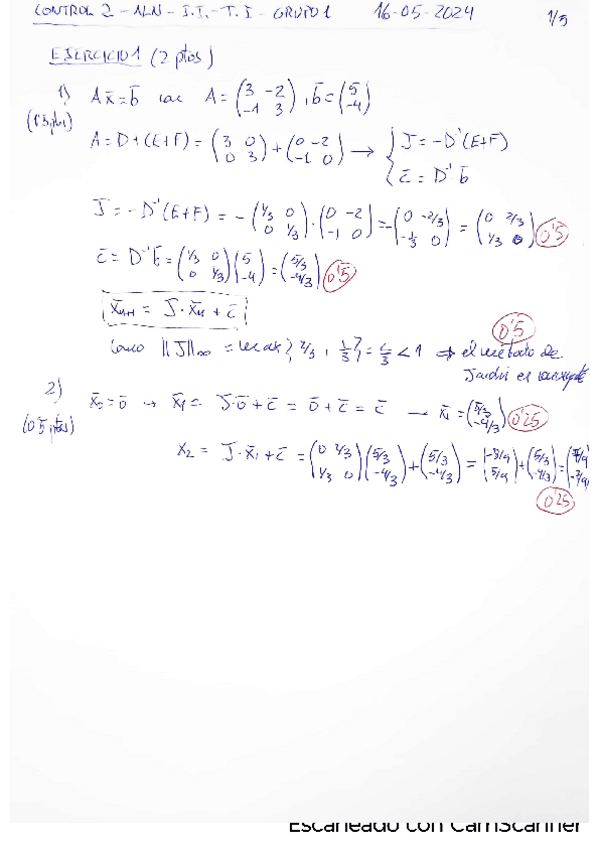 CONTROL 2 - ALN - I.I. - T.I - GRUPO 1 16-05-2024 1/5
EJERCICIO 1 (2 ptos)
1) A x̄ = b̄ con A = (3 -2; -1 3), b̄ = (5; -4)
(1'5 ptos)
A = D + (E+F) = (3 0; 0 3) + (0 -2; -1 0) → { J = -D⁻¹(E+F)
c̄ = D⁻¹ b̄
J = -D⁻¹(E+F) = -(1/3 0; 0 1/3)·(0 -2; -1 0) = -(0 -2/3; -1/3 0) = (0 2/3; 1/3 0) 0'5
c̄ = D⁻¹ b̄ = (1/3 0; 0 1/3)(5; -4) = (5/3; -4/3) 0'5
x̄ₙ₊₁ = J · x̄ₙ + c̄
0'5
Como ||J||∞ = max{2/3, 1/3} = 2/3 < 1 ⇒ el método de
Jacobi es convergente
2) x̄₀ = 0̄ → x̄₁ = J·0̄ + c̄ = 0̄ + c̄ = c̄ → x̄₁ = (5/3; -4/3) 0'25
(0'5 ptos)
x₂ = J · x̄₁ + c̄ = (0 2/3; 1/3 0)(5/3; -4/3) + (5/3; -4/3) = (-8/9; 5/9) + (5/3; -4/3) = (7/9; -7/9)
0'25
Escaneado con CamScanner